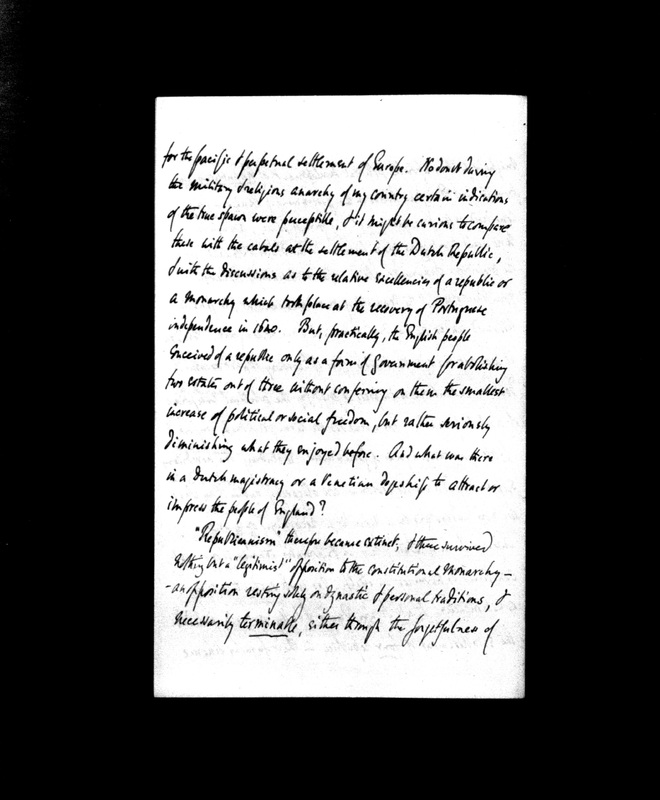 for the pacific & perpetual settlement of Europe. No doubt during
the military & religious anarchy of my country certain indications
of the true spawn were perceptible, & it might be curious to compare
these with the cabals at the settlement of the Dutch Republic,
& with the discussions as to the relative excellencies of a republic or
a monarchy which took place at the recovery of Portuguese
independence in 1640. But, practically, the English people
conceived of a republic only as a form of Government for abolishing
two estates out of three without conferring on them the smallest
increase of political or social freedom, but rather seriously
diminishing what they enjoyed before. And what was there
in a Dutch magistracy or a Venetian dogeship to attract or
impress the people of England?
"Republicanism" therefore became extinct, & there survived
nothing but a "legitimist" opposition to the constitutional monarchy –
– an opposition resting solely on dynastic & personal traditions, &
necessarily terminable, either through the forgetfulness of